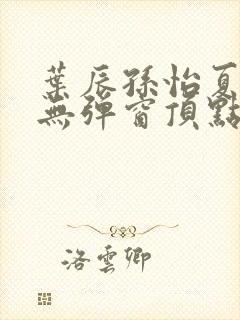 葉辰孫怡夏
無彈窗頂點
洛雲卿